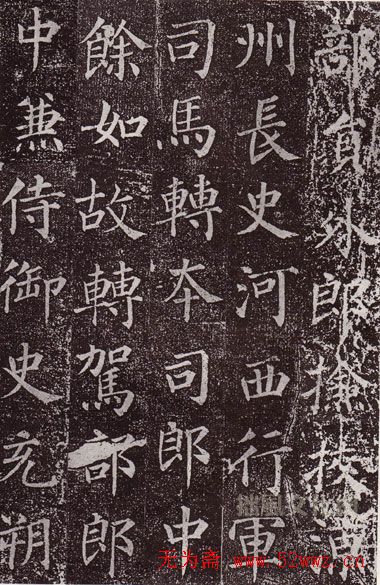 部貟外郎撿挍涼
州長史河西行軍
司馬轉夲司郎中
餘如故轉駕部郎
中兼侍御史充朔
无为斋 www.52wwz.cn